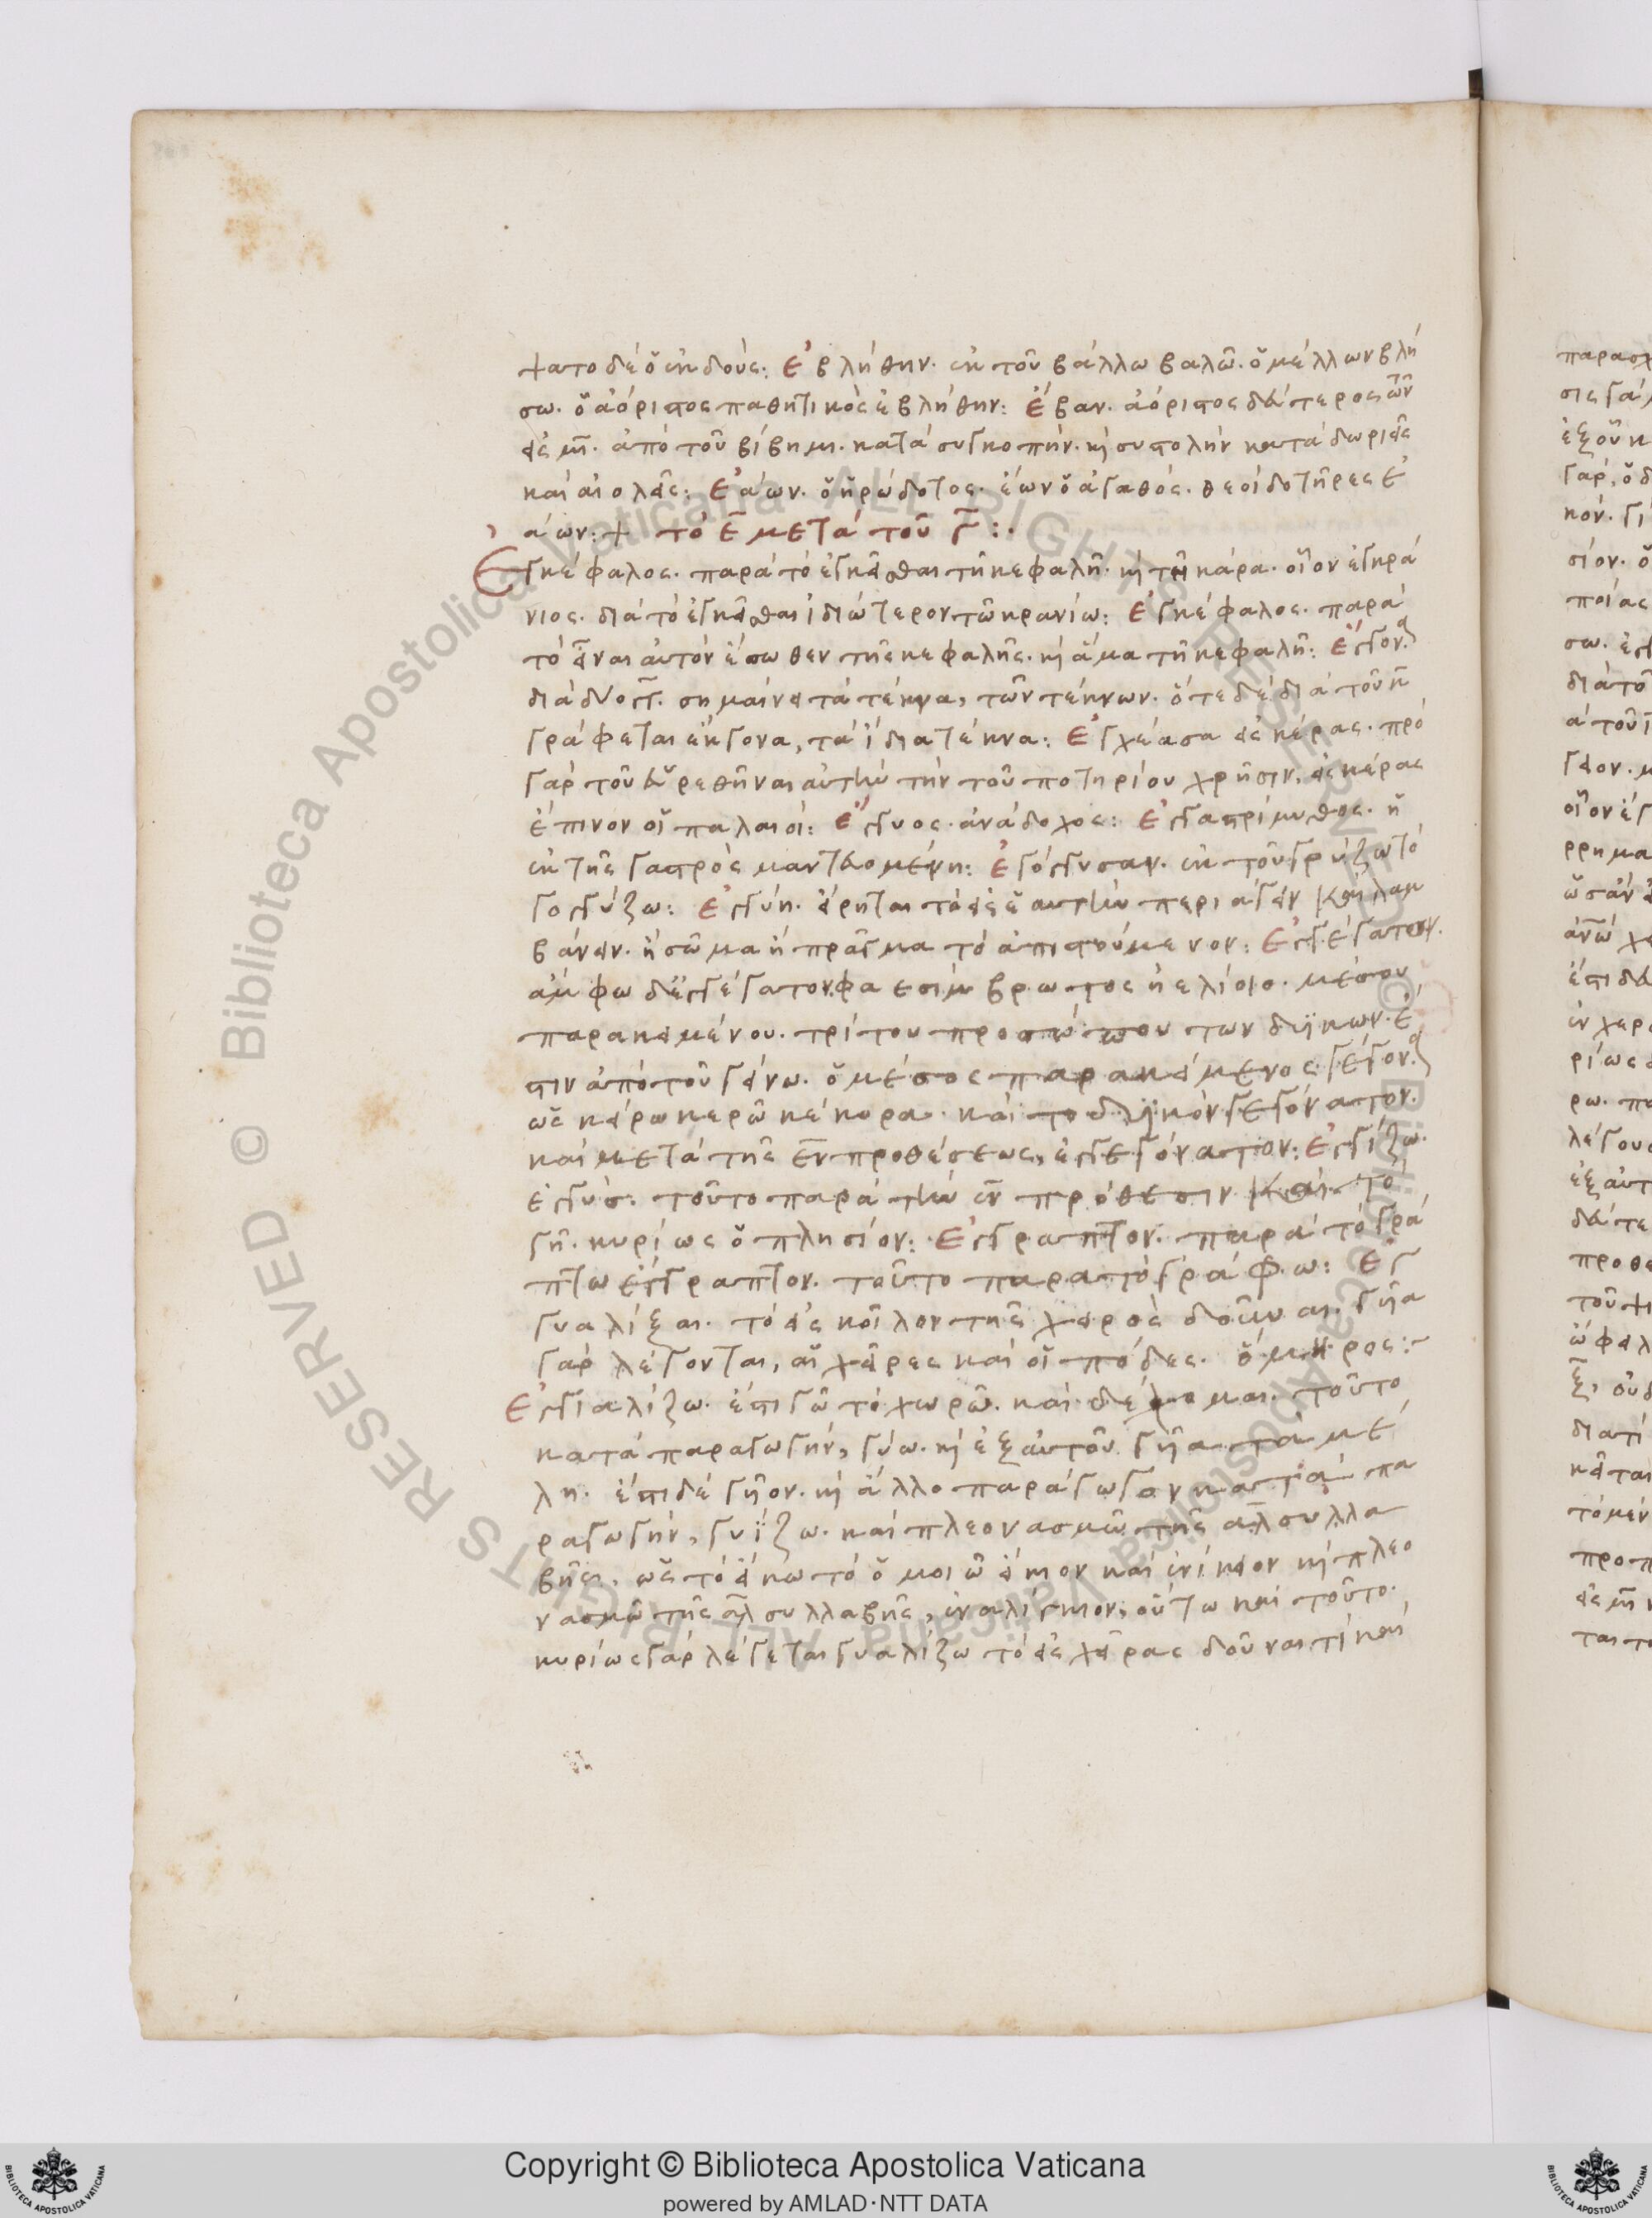 ψατο δέ ὅ ἐκδούς: Ἐβλήθην. ἐκ τοῦ βάλλω βαλῶ. ὅ μέλλων βλή
σω. ὅ ἀόριστος παθητικὸς ἐβλήθην: Ἔβαν. ἀόριστος δεύτερος τῶν
εἰς μι. ἀπὸ τοῦ βίβημι. κατά συγκοπήν. κ συστολήν κατά δωριεῖς
καί αἰολεῖς: Ἐάων. ὅ ἡρώδοτος. ἐών ὅ ἀγαθός. θεοί δοτῆρες ἐ
άων: + τὸ ε μετά τοῦ γ:.
Ἐγκέφαλος. παρά τὸ ἐγκεῖσθαι τῆ κεφαλῆ. κ τῆ κάρα. οἷον ἐγκρά
νιος. διά τὸ ἐγκεῖσθαι ἰδιώτερον τῶ κρανίω: Ἐγκέφαλος. παρά
τό εἶναι αὐτόν ἔσωθεν τῆς κεφαλῆς. κ ἅμα τῆ κεφαλῆ: Ἔγγονα
διά δύο γγ. σημαίνει τά τέκνα, τῶν τέκνων. ὅτε δέ διά τοῦ κ
γράφεται ἔκγονα, τά ἴδια τέκνα: Ἐγχέασα εἰς κέρας. πρό
γάρ τοῦ εὑρεθῆναι αὐτήν τήν τοῦ ποτηρίου χρῆσιν. εἰς κέρας
ἔπινον οἵ παλαιοί: Ἔγγυος. ἀνάδοχος: Ἐγγαστρίμυθος. ἥ
ἐκ τῆς γαστρός μαντευομένη: Ἐγόγγυσαν. ἐκ τοῦ γρύζω τό
γογγύζω: Ἐγγύη. εἴρηται τό εἰς ἕ αὐτήν περιάγειν καί λαμ
βάνειν. ἤ σῶμα ἤ πρᾶγμα τό ἀπιστούμενον: Ἐγγεγάατον.
ἄμφω δ' ἐγγεγάατον φαεσίμβροτος ἠελίοιο. μέσου
παρακειμένου. τρίτου προσώπου των δυϊκῶν. ἔ
στιν ἀπό τοῦ γείνω. ὅ μέσος παρακείμενος γέγονα
ὡς κείρω κερῶ κέκορα. καί το δυϊκόν γεγόνατον.
καί μετά τῆς ἐν προθέσεως, ἐγγεγόνατον: Ἐγγίζω.
ἐγγύς. τοῦτο παρά τήν ἐν πρόθεσιν καί τό
γῆ. κυρίως ὅ πλησίον: Ἔγγραπτον. παρά τό γρά
πτω ἔγγραπτον. τοῦτο παρα τό γράφω: Ἐγ
γυαλίξαι. τό εἰς κοῖλον τῆς χειρός δοῦναι. γῆα
γάρ λέγονται, αἵ χεῖρες καί οἵ πόδες. ὅμηρος:
Ἐγγιαλίζω. ἔστι γῶ τό χωρῶ. καί δέχομαι. τοῦτο
κατά παραγωγήν, γύω. κ ἐξ αὐτοῦ γῆα τά μέ
λη. ἔστι δέ γῆον. κ ἄλλο παράγωγον κατά πα
ραγωγήν, γυΐζω. καί πλεονασμῶ τῆς αλ συλλα
βῆς, ὡς τό εἴκω τό ὅμοιῶ εἴκιον καί ἐνίκειον κ πλεο
νασμῶ τῆς αλ συλλαβῆς, ἐναλίγκιον, οὕτω καί τοῦτο.
κυρίως γάρ λέγεται γυαλίζω τό εἰς χεῖρας δοῦναι τί καί
Copyright © Biblioteca Apostolica Vaticana
powered by AMLAD・NTT DATA